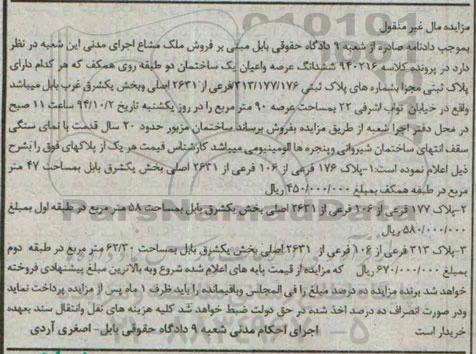 مزایده مال غیر منقول
بموجب دادنامه صادره از شعبه ۹ دادگاه حقوقی بابل مبنی بر فروش ملک مشاع اجرای مدنی این شعبه در نظر
دارد در پرونده کلاسه ۹۴۰۲۱۶ ششدانگ عرصه واعیان یک ساختمان دو طبقه روی همکف که هر کدام دارای
پلاک ثبتی مجزا بشماره های پلاک ثبتی ۳۱۳/۱۷۷/۱۷۶فرعی از ۲۶۳۱ اصلی وبخش یکشرق غرب بابل میباشد
واقع در خیابان نواب اشرفی ۲۲ بمساحت عرصه ۹۰ متر مربع را در روز یکشنبه تاریخ ۹۴/۱۰/۲ ساعت ۱۱ صبح
در محل دفتر اجرا شعبه از طریق مزایده بفروش برساند ساختمان مزبور حدود ۲۰ سال قدمت با نمای سنگی
سقف انتهای ساختمان شیروانی وپنجره ها الومینیومی میباشد کارشناس قیمت هر یک از پلاکهای فوق را بشرح
ذیل اعلام نموده است:۱-پلاک ۱۷۶ فرعی از ۱۰۶ فرعی از ۲۶۳۱ اصلی بخش یکشرق بابل بمساحت ۴۷ متر
مربع در طبقه همکف بمبلغ ۴۵۰/۰۰۰/۰۰۰ ریال
۲-پلاک ۱۷۷ فرعی از ۱۰۶ فرعی از ۲۶۳۱ اصلی بخش یکشرق بابل بمساحت ۵۸ متر مربع در طبقه اول بمبلغ
۵۸۰/۰۰۰/۰۰۰ ریال
۳-پلاک ۳۱۳ فرعی از ۱۰۶ فرعی از ۲۶۳۱ اصلی بخش یکشرق بابل بمساحت ۶۲/۳۰ متر مربع در طبقه دوم
بمبلغ ۶۷۰/۰۰۰/۰۰۰ ریال که مزایده از قیمت پایه های اعلام شده شروع وبه بالاترین مبلغ پیشنهادی فروخته
خواهد شد برنده مزایده ده درصد مبلغ را فی المجلس وباقیمانده را باید ظرف ۱ ماه پس از مزایده پرداخت نماید
ودر صورت انصراف ده درصد اخذ شده در حق دولت ضبط خواهد شد کلیه هزینه های نقل وانتقال سند بعهده
خریدار است اجرای احکام مدنی شعبه ۹ دادگاه حقوقی بابل- اصغری آزدی